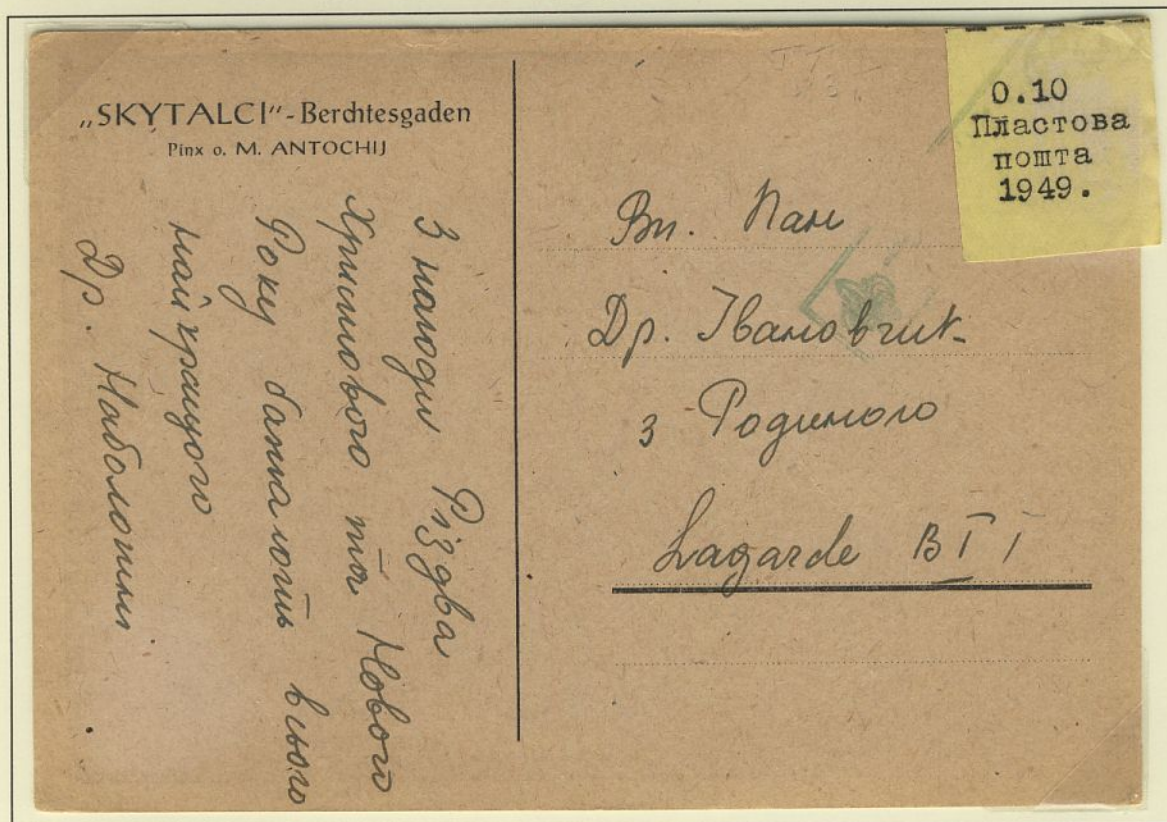 „SKYTALCI"-Berchtesgaden
Pinx o. M. ANTOCHIJ
З нагоди Різдва
Христового та Нового
Року бажають всього
найкращого
Др. Наболотни
0.10
Пластова
пошта
1949.
Вп. Пан
Др. Івановчик
з Родиною
Lagarde B I I